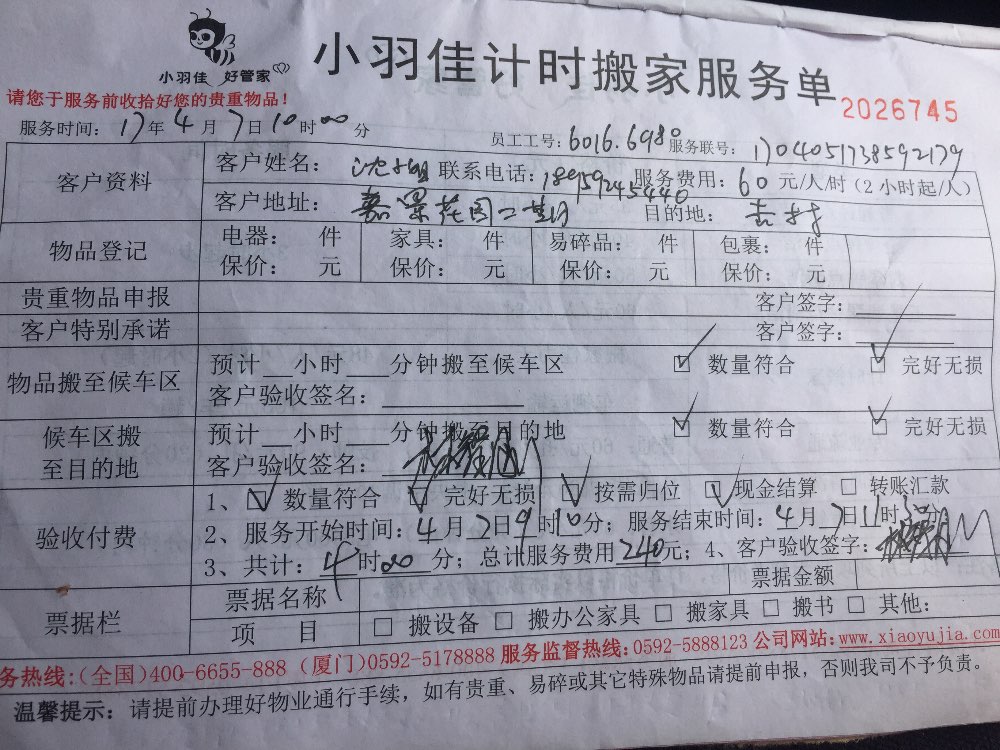 小羽佳 好管家
小羽佳计时搬家服务单
2026745
请您于服务前收拾好您的贵重物品！
服务时间：17年4月7日10时00分
员工工号：6016.6980 服务联号：1704051738592179
客户资料
客户姓名：沈小姐 联系电话：18959245440 服务费用：60元/人/时（2小时起/人）
客户地址：嘉景花园二期 目的地：
物品登记
电器： 件 家具： 件 易碎品： 件 包裹： 件
保价： 元 保价： 元 保价： 元 保价： 元
贵重物品申报 客户签字：
客户特别承诺 客户签字：
物品搬至候车区
预计 小时 分钟搬至候车区 ☑ 数量符合 ☑ 完好无损
客户验收签名：
候车区搬至目的地
预计 小时 分钟搬至目的地 ☑ 数量符合 ☑ 完好无损
客户验收签名：
验收付费
1、☑ 数量符合 ☑ 完好无损 ☑ 按需归位 ☑ 现金结算 □ 转账汇款
2、服务开始时间：4月7日9时10分；服务结束时间：4月7日11时30分
3、共计：4时00分；总计服务费用240元；4、客户验收签字：
票据栏
票据名称 票据金额
项 目 □ 搬设备 □ 搬办公家具 □ 搬家具 □ 搬书 □ 其他：
务热线：（全国）400-6655-888（厦门）0592-5178888 服务监督热线：0592-5888123 公司网站：www.xiaoyujia.com
温馨提示：请提前办理好物业通行手续，如有贵重、易碎或其它特殊物品请提前申报，否则我司不予负责。